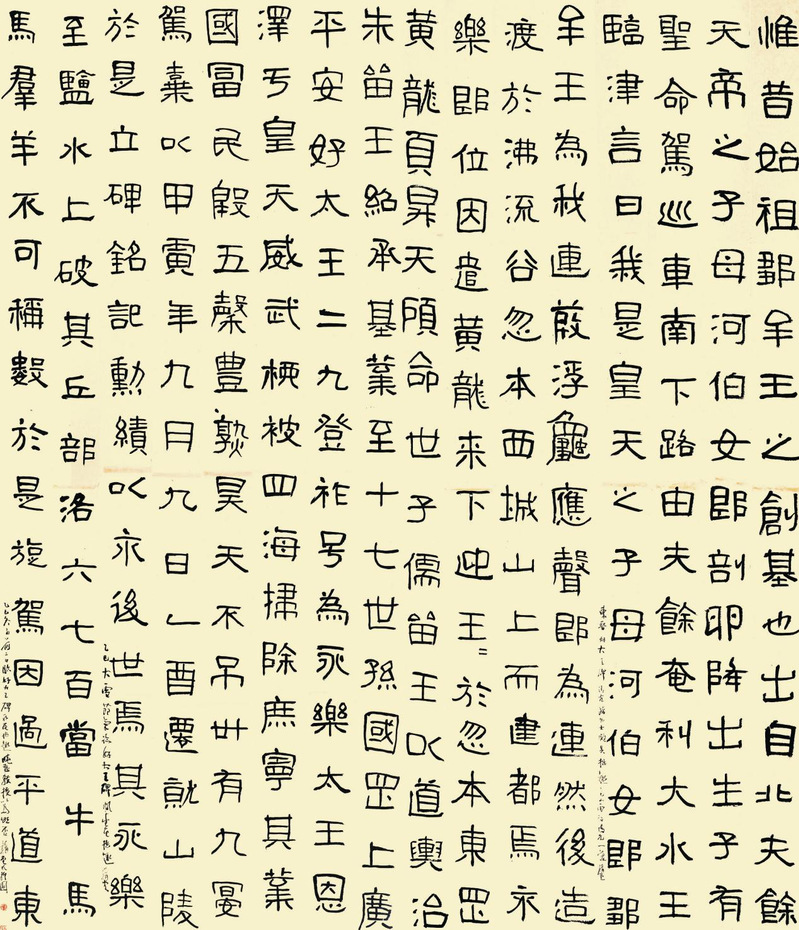 惟昔始祖鄒牟王之創基也出自北夫餘
天帝之子母河伯女郎剖卵降出生子有
聖命駕巡車南下路由夫餘奄利大水王
臨津言曰我是皇天之子母河伯女郎鄒
牟王為我連葭浮龜應聲即為連然後造
渡於沸流谷忽本西城山上而建都焉永
樂即位因遣黃龍来下迎王〻於忽本東罡
黃龍頁昇天顧命世子儒留王以道輿治
朱留王紹承基業至十七世孫國罡上廣
平安好太王二九登祚号為永樂太王恩
澤于皇天威武柳被四海掃除庶寧其業
國富民殷五穀豊熟昊天不吊卅有九宴
駕棄以甲寅年九月九日乙酉遷就山陵
於是立碑銘記勳績以永後世焉其永樂
至鹽水上破其丘部洛六七百當牛馬
馬羣羊不可稱數於是旋駕因過平道東